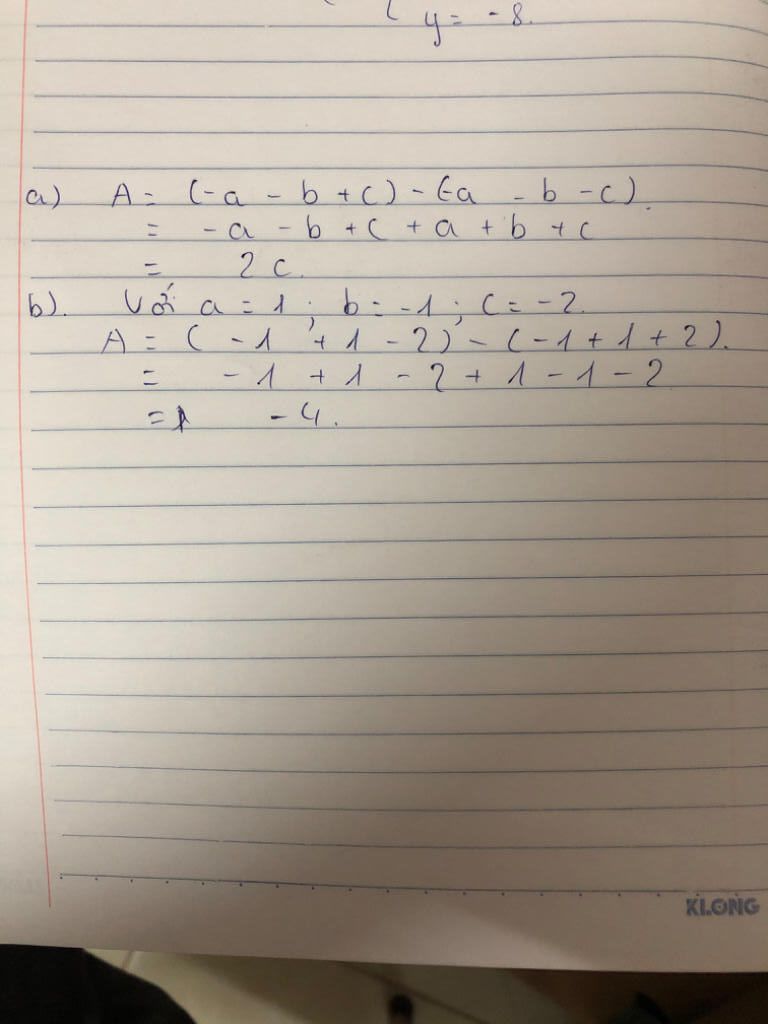 y = -8.
a) A = (-a - b + c) - (-a - b - c).
= -a - b + c + a + b + c
= 2c.
b). Với a = 1; b = -1; c = -2.
A = (-1 + 1 - 2) - (-1 + 1 + 2).
= -1 + 1 - 2 + 1 - 1 - 2
= -4.
KLONG